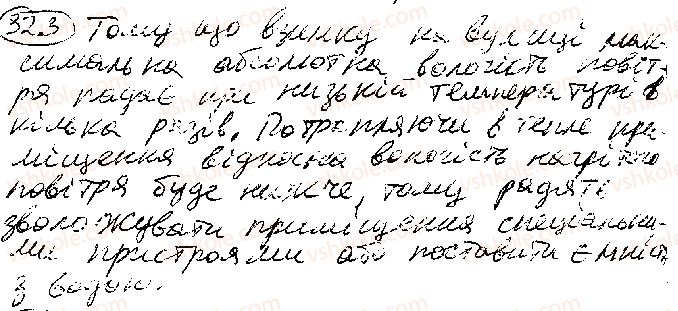 32.3 Тому що взимку на вулиці мак-
симальна абсолютна вологість повіт-
ря падає при низькій температурі в
кілька разів. Потрапляючи в тепле при-
міщення відносна вологість нагрітого
повітря буде нижче, тому радять
зволожувати приміщення спеціальни-
ми пристроями або поставити ємність
з водою.